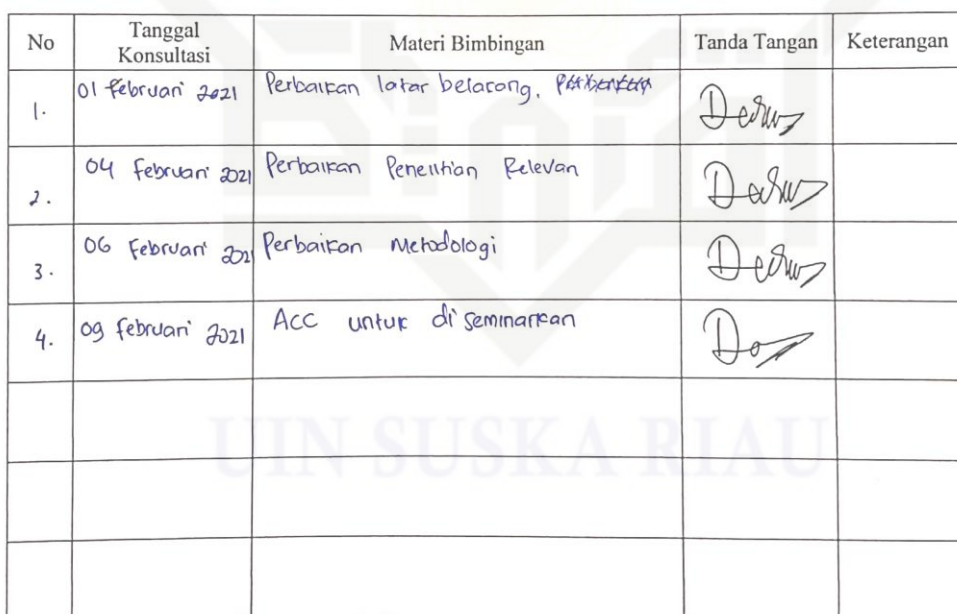 No Tanggal Konsultasi Materi Bimbingan Tanda Tangan Keterangan
1. 01 Februari 2021 Perbaikan latar belacong,
2. 04 Februari 2021 Perbaikan Penelitian Relevan
3. 06 Februari 2021 Perbaikan Metodologi
4. 09 Februari 2021 ACC untuk di seminarkan
UIN SUSKA RIAU